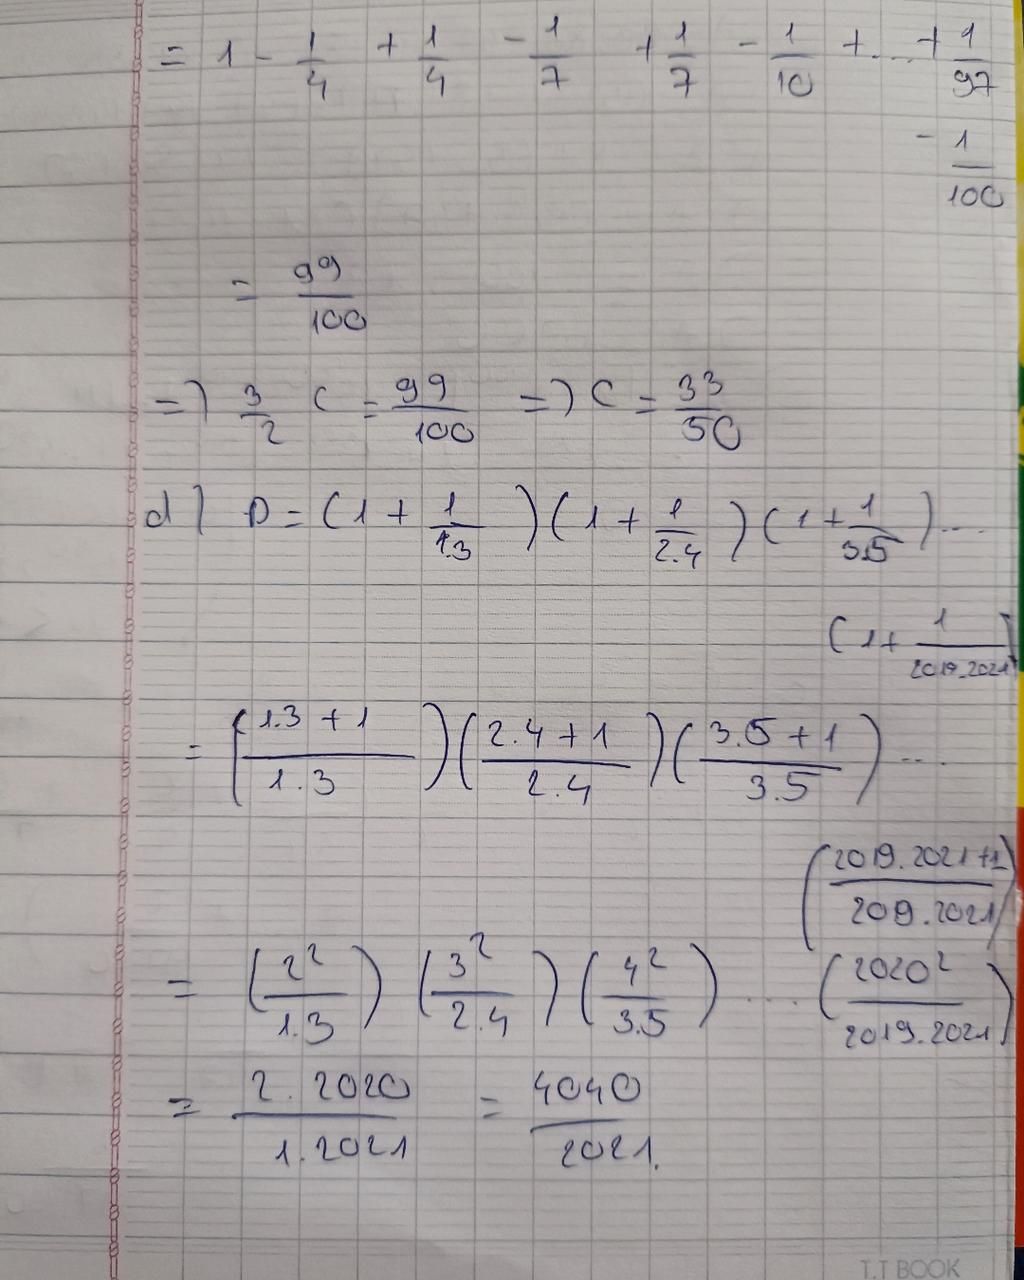 = 1 - 1/4 + 1/4 - 1/7 + 1/7 - 1/10 + .... + 1/97
- 1/100
= 99/100
=) 3/2 C = 99/100 =) C = 33/50
d) D = (1 + 1/1.3) (1 + 1/2.4) (1 + 1/3.5) ...
(1 + 1/2019.2021)
= (1.3 + 1/1.3) (2.4 + 1/2.4) (3.5 + 1/3.5) ...
(2019.2021+1/209.2021)
= (2²/1.3) (3²/2.4) (4²/3.5) .... (2020²/2019.2021)
= 2.2020/1.2021 = 4040/2021.
T.T BOOK